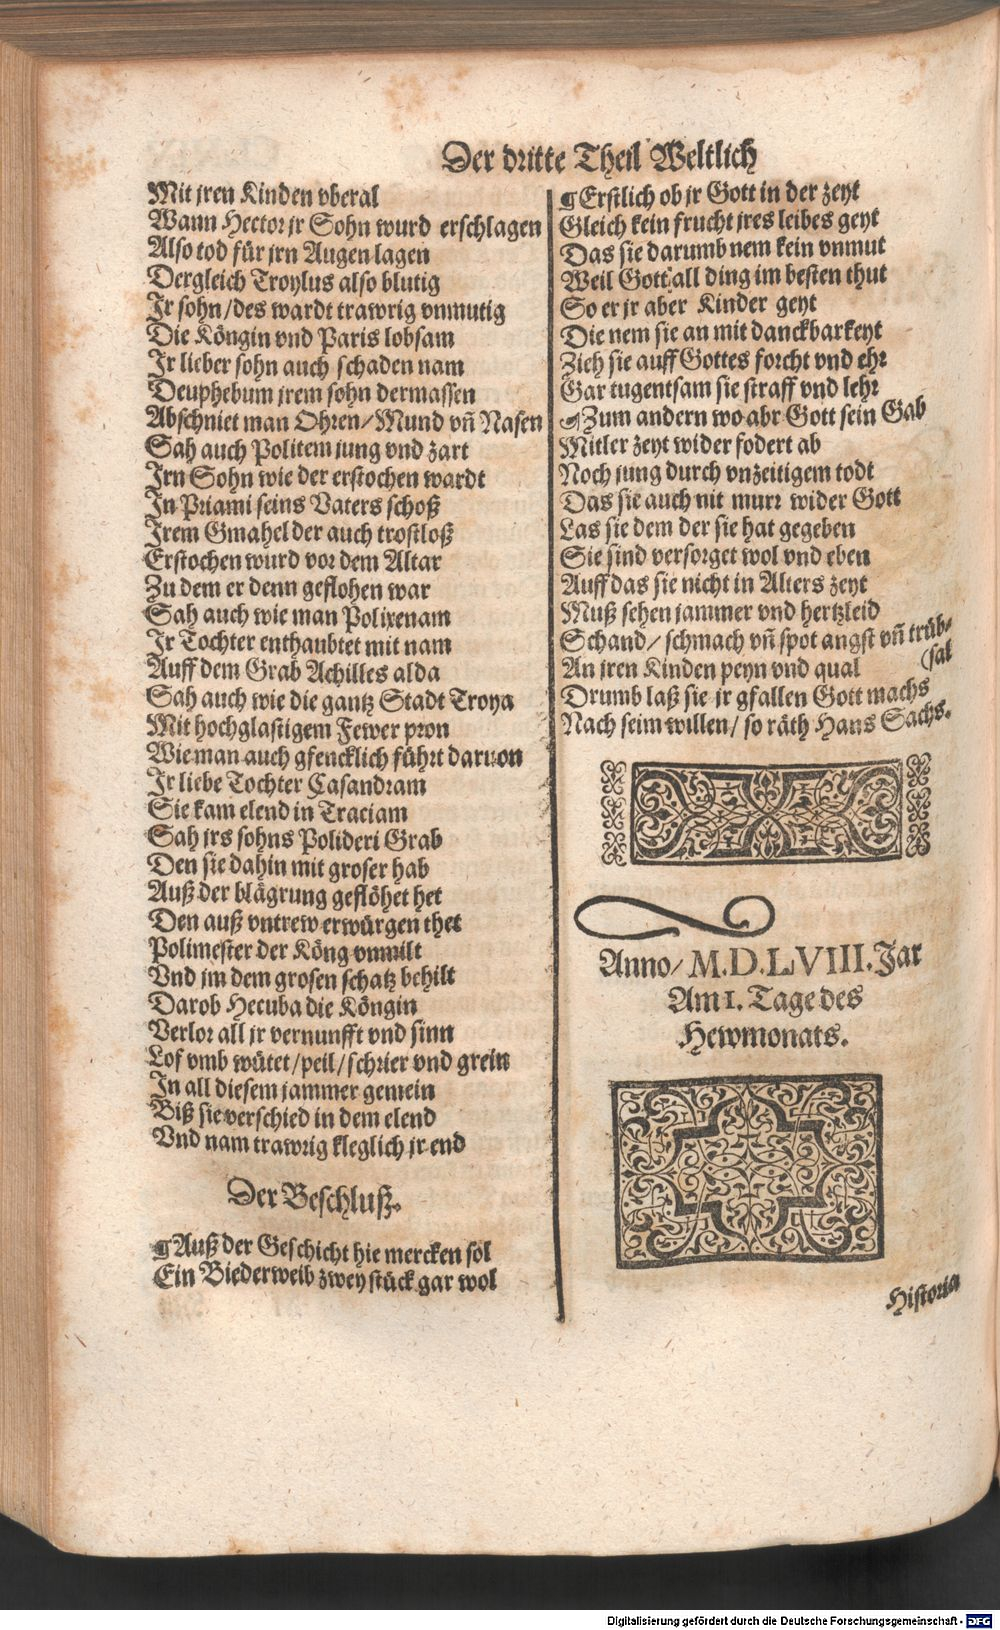 Der dritte Theil Weltlich
Mit jren Kinden vberal
Wann Hector jr Sohn wurd erschlagen
Also tod für jrn Augen lagen
Dergleich Troylus also blutig
Jr sohn/des wardt trawrig vnmutig
Die Köngin vnd Paris lobsam
Jr lieber sohn auch schaden nam
Deuphebum jrem sohn dermassen
Abschniet man Ohren/Mund vñ Nasen
Sah auch Politem jung vnd zart
Jrn Sohn wie der erstochen wardt
In Priami seins Vaters schoß
Jrem Gmahel der auch trostloß
Erstochen wurd vor dem Altar
Zu dem er denn geflohen war
Sah auch wie man Polixenam
Jr Tochter enthaubtet mit nam
Auff dem Grab Achilles alda
Sah auch wie die gantz Stadt Troya
Mit hochglastigem Fewer pron
Wie man auch gfencklich führt daruon
Jr liebe Tochter Casandram
Sie kam elend in Traciam
Sah jrs sohns Polideri Grab
Den sie dahin mit groser hab
Auß der blägrung geflöhet het
Den auß vntrew erwürgen thet
Polimester der Köng vnmilt
Vnd jm dem grosen schatz behilt
Darob Hecuba die Köngin
Verlor all jr vernunfft vnd sinn
Lof vmb wütet/peil/schrier vnd grein
In all diesem jammer gemein
Biß sie verschied in dem elend
Vnd nam trawrig kleglich jr end
Der Beschluß.
¶ Auß der Geschicht hie mercken sol
Ein Biederweib zwey stück gar wol
¶ Erstlich ob jr Gott in der zeyt
Gleich kein frucht jres leibes geyt
Das sie darumb nem kein vnmut
Weil Gott all ding im besten thut
So er jr aber Kinder geyt
Die nem sie an mit danckbarkeyt
Zieh sie auff Gottes forcht vnd ehr
Gar tugentsam sie straff vnd lehr
¶ Zum andern wo abr Gott sein Gab
Mitler zeyt wider fodert ab
Noch jung durch vnzeitigem todt
Das sie auch nit murr wider Gott
Las sie dem der sie hat gegeben
Sie sind versorget wol vnd eben
Auff das sie nicht in Alters zeyt
Muß sehen jammer vnd hertzleid
Schand/ schmach vñ spot angst vñ trüb-
(sal
An jren Kinden peyn vnd qual
Drumb laß sie jr gfallen Gott machs
Nach seim willen/ so räth Hans Sachs.
Anno/ M.D.LVIII. Jar
Am 1. Tage des
Hewmonats.
Historia
Digitalisierung gefördert durch die Deutsche Forschungsgemeinschaft - DFG